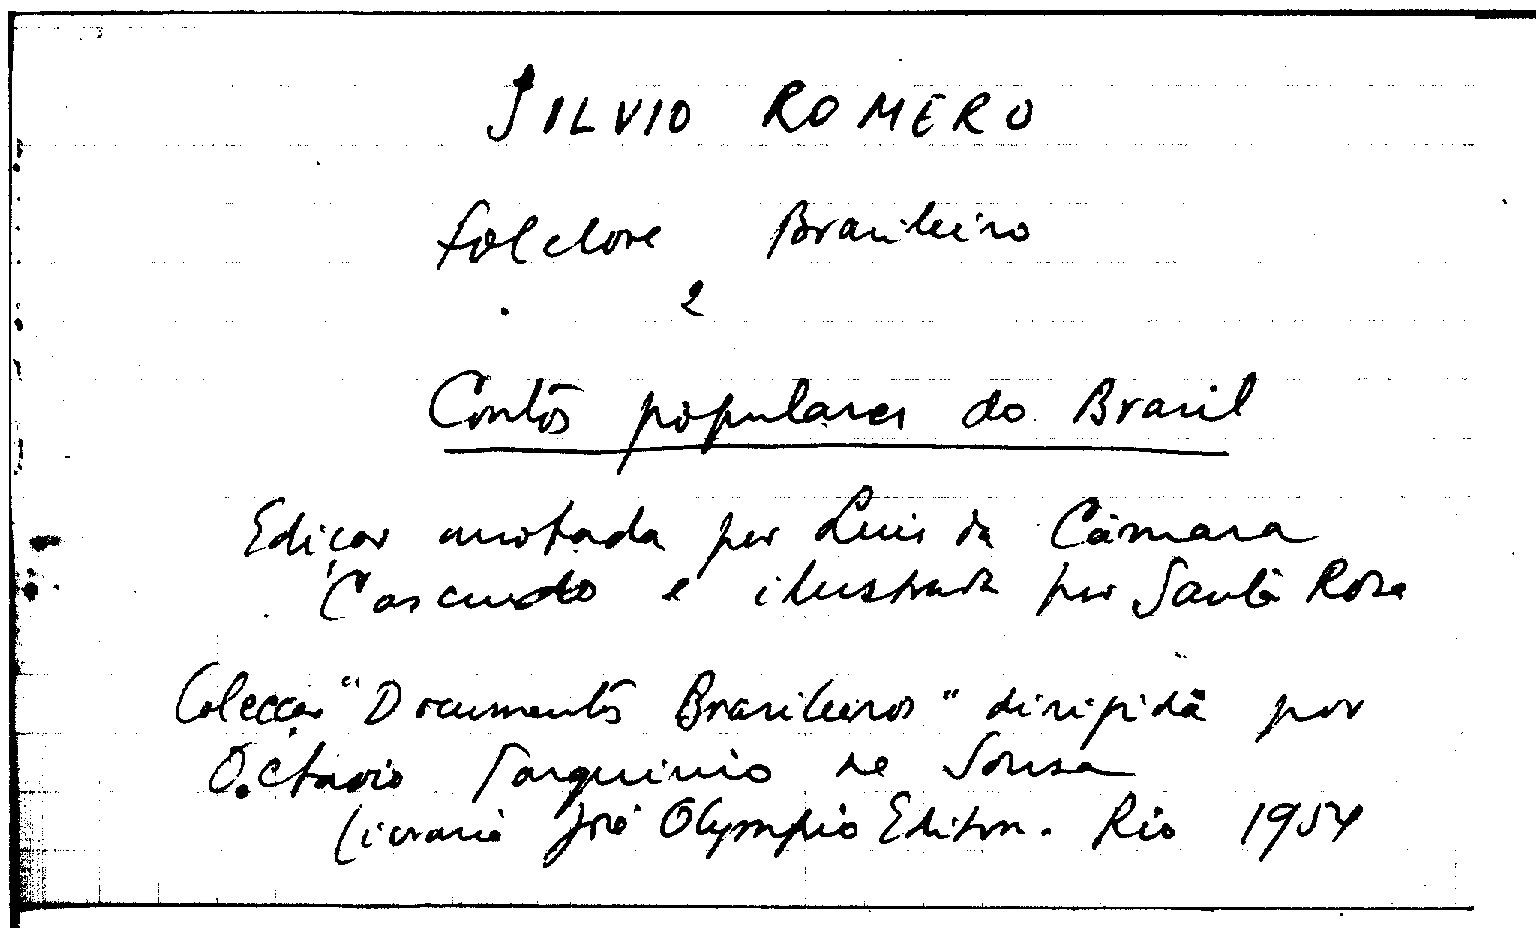 SILVIO ROMERO
folclore Brasileiro
2
Contos populares do Brasil
Edição anotada por Luis da Câmara
Cascudo e ilustrada por Santa Rosa
Colecção "Documentos Brasileiros" dirigida por
Octavio Tarquinio de Sousa
Livraria José Olympio Editora. Rio 1954